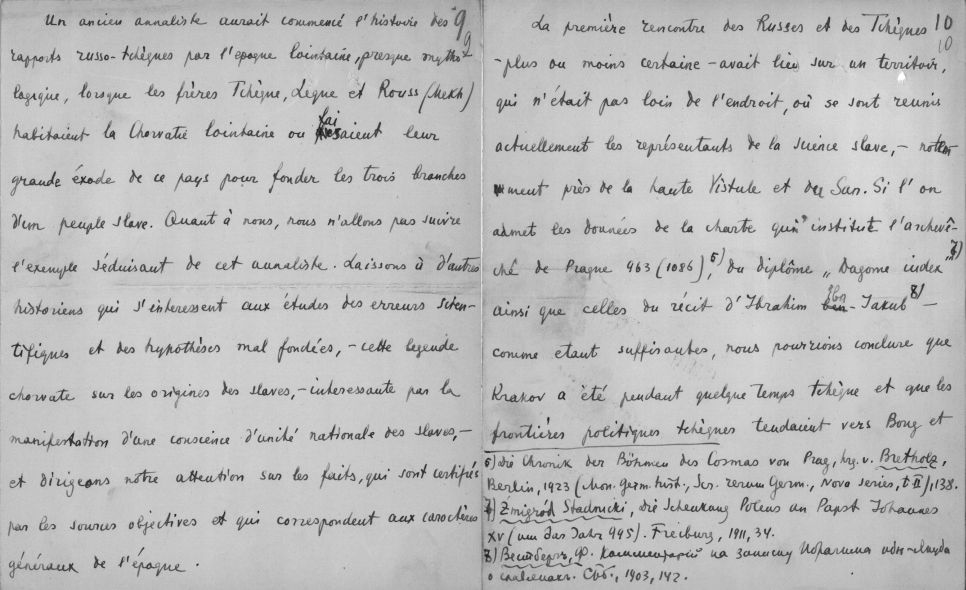 9
9
Un ancien annaliste aurait commencé l'histoire des
rapports russo-tchèques par l'epoque lointaine, presque mytho-
logique, lorsque les frères Tchèque, Lèque et Rouss (Mekh)
habitaient la Chorvatie lointaine ou faisaient leur
grande éxode de ce pays pour fonder les trois branches
d'un peuple slave. Quant à nous, nous n'allons pas suivre
l'exemple séduisant de cet annaliste. Laissons à d'autres
historiens qui s'interessent aux études des erreurs scien-
tifiques et des hypothèses mal fondées, - cette legende
chorvate sur les origines des slaves, - interessante par la
manifestation d'une conscience d'unité nationale des slaves, -
et dirigeons notre attention sur les faits, qui sont certifiés
par les sources objectives et qui correspondent aux caractères
généraux de l'époque.
10
10
La première rencontre des Russes et des Tchèques
- plus ou moins certaine - avait lieu sur un territoir,
qui n'était pas loin de l'endroit, où se sont reunis
actuellement les représentants de la science slave, -
ment près de la haute Vistule et du San. Si l'on
admet les données de la charte qui institute l'archevê-
ché de Prague 963 (1086),6) du diplôme „Dagome index"7)
ainsi que celles du récit d'Ibrahim Ibn Jakub8) -
comme etant suffisantes, nous pourrions conclure que
Krakov a été pendant quelque temps tchèque et que les
frontières politiques tchèques tendaient vers Boug et
6) Die Chronik der Böhmen des Cosmas von Prag, hrg. v. Bretholz,
Berlin, 1923 (Mon. Germ. hist., Scr. rerum Germ., Nova series, t. II), 138.
7) Zmigród Stadnicki, Die Schenkung Polens an Papst Johannes
XV (um das Jahr 995). Freiburg, 1911, 34.
8) Вестбергъ, Ф. Комментарій на записку Ибрагима ибн-Якуба
о славянахъ. Спб., 1903, 142.